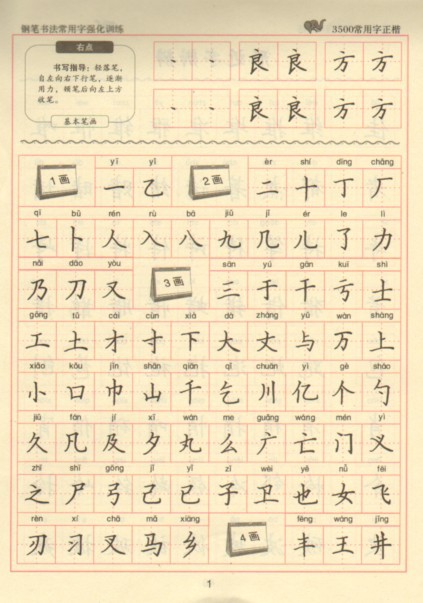 钢笔书法常用字强化训练 3500常用字正楷
右点
书写指导：轻落笔，
自左向右下行笔，逐渐
用力，顿笔后向左上方
收笔。
基本笔画
丶 丶 良 良 方 方
丶 丶 良 良 方 方
yī yǐ èr shí dīng chǎng
1画 一 乙 2画 二 十 丁 厂
qī bǔ rén rù bā jiǔ jǐ ér le lì
七 卜 人 入 八 九 几 儿 了 力
nǎi dāo yòu sān yú gān kuī shì
乃 刀 又 3画 三 于 干 亏 士
gōng tǔ cái cùn xià dà zhàng yǔ wàn shàng
工 土 才 寸 下 大 丈 与 万 上
xiǎo kǒu jīn shān qiān qǐ chuān yì gè sháo
小 口 巾 山 千 乞 川 亿 个 勺
jiǔ fán jí xī wán me guǎng wáng mén yì
久 凡 及 夕 丸 么 广 亡 门 义
zhī shī gōng jǐ yǐ zǐ wèi yě nǚ fēi
之 尸 弓 己 已 子 卫 也 女 飞
rèn xí chā mǎ xiāng fēng wáng jǐng
刃 习 叉 马 乡 4画 丰 王 井
1